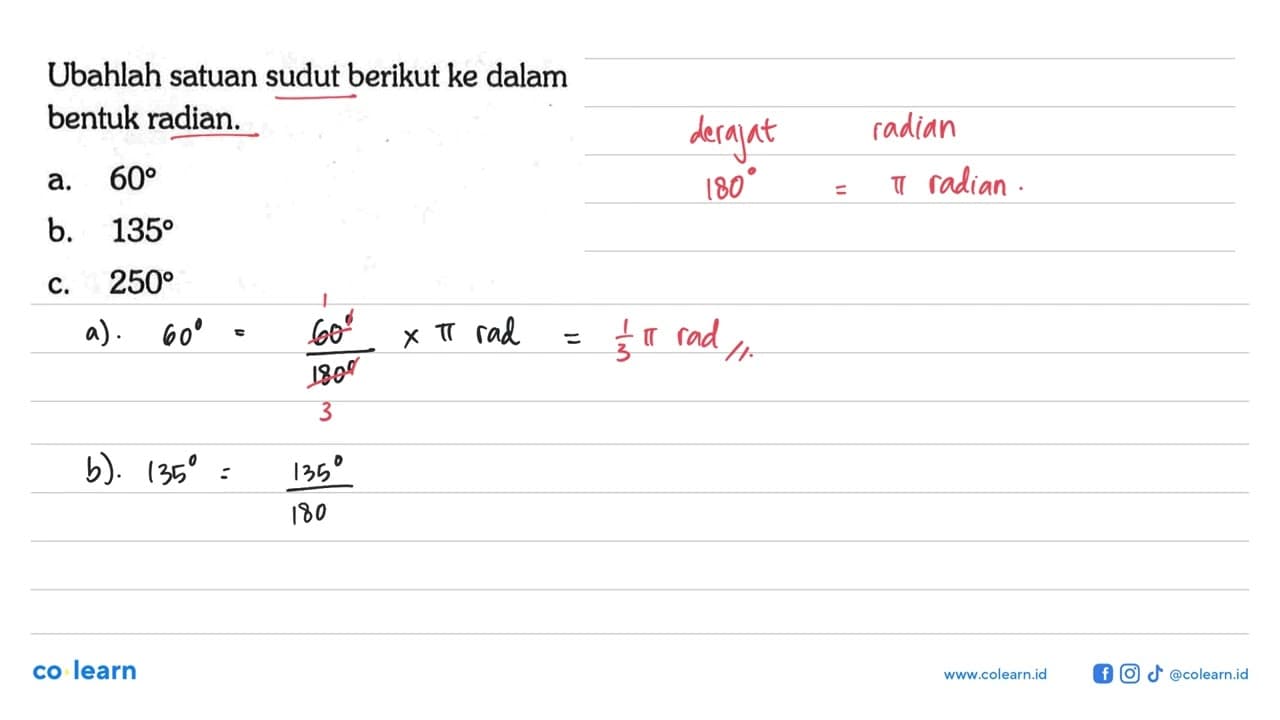 Ubahlah satuan sudut berikut ke dalam
bentuk radian.
a. 60°
b. 135°
c. 250°
derajat radian
180° = π radian.
a). 60° = 60°/180° × π rad = 1/3 π rad //.
1
3
b). 135° = 135°/180
co learn
www.colearn.id @colearn.id